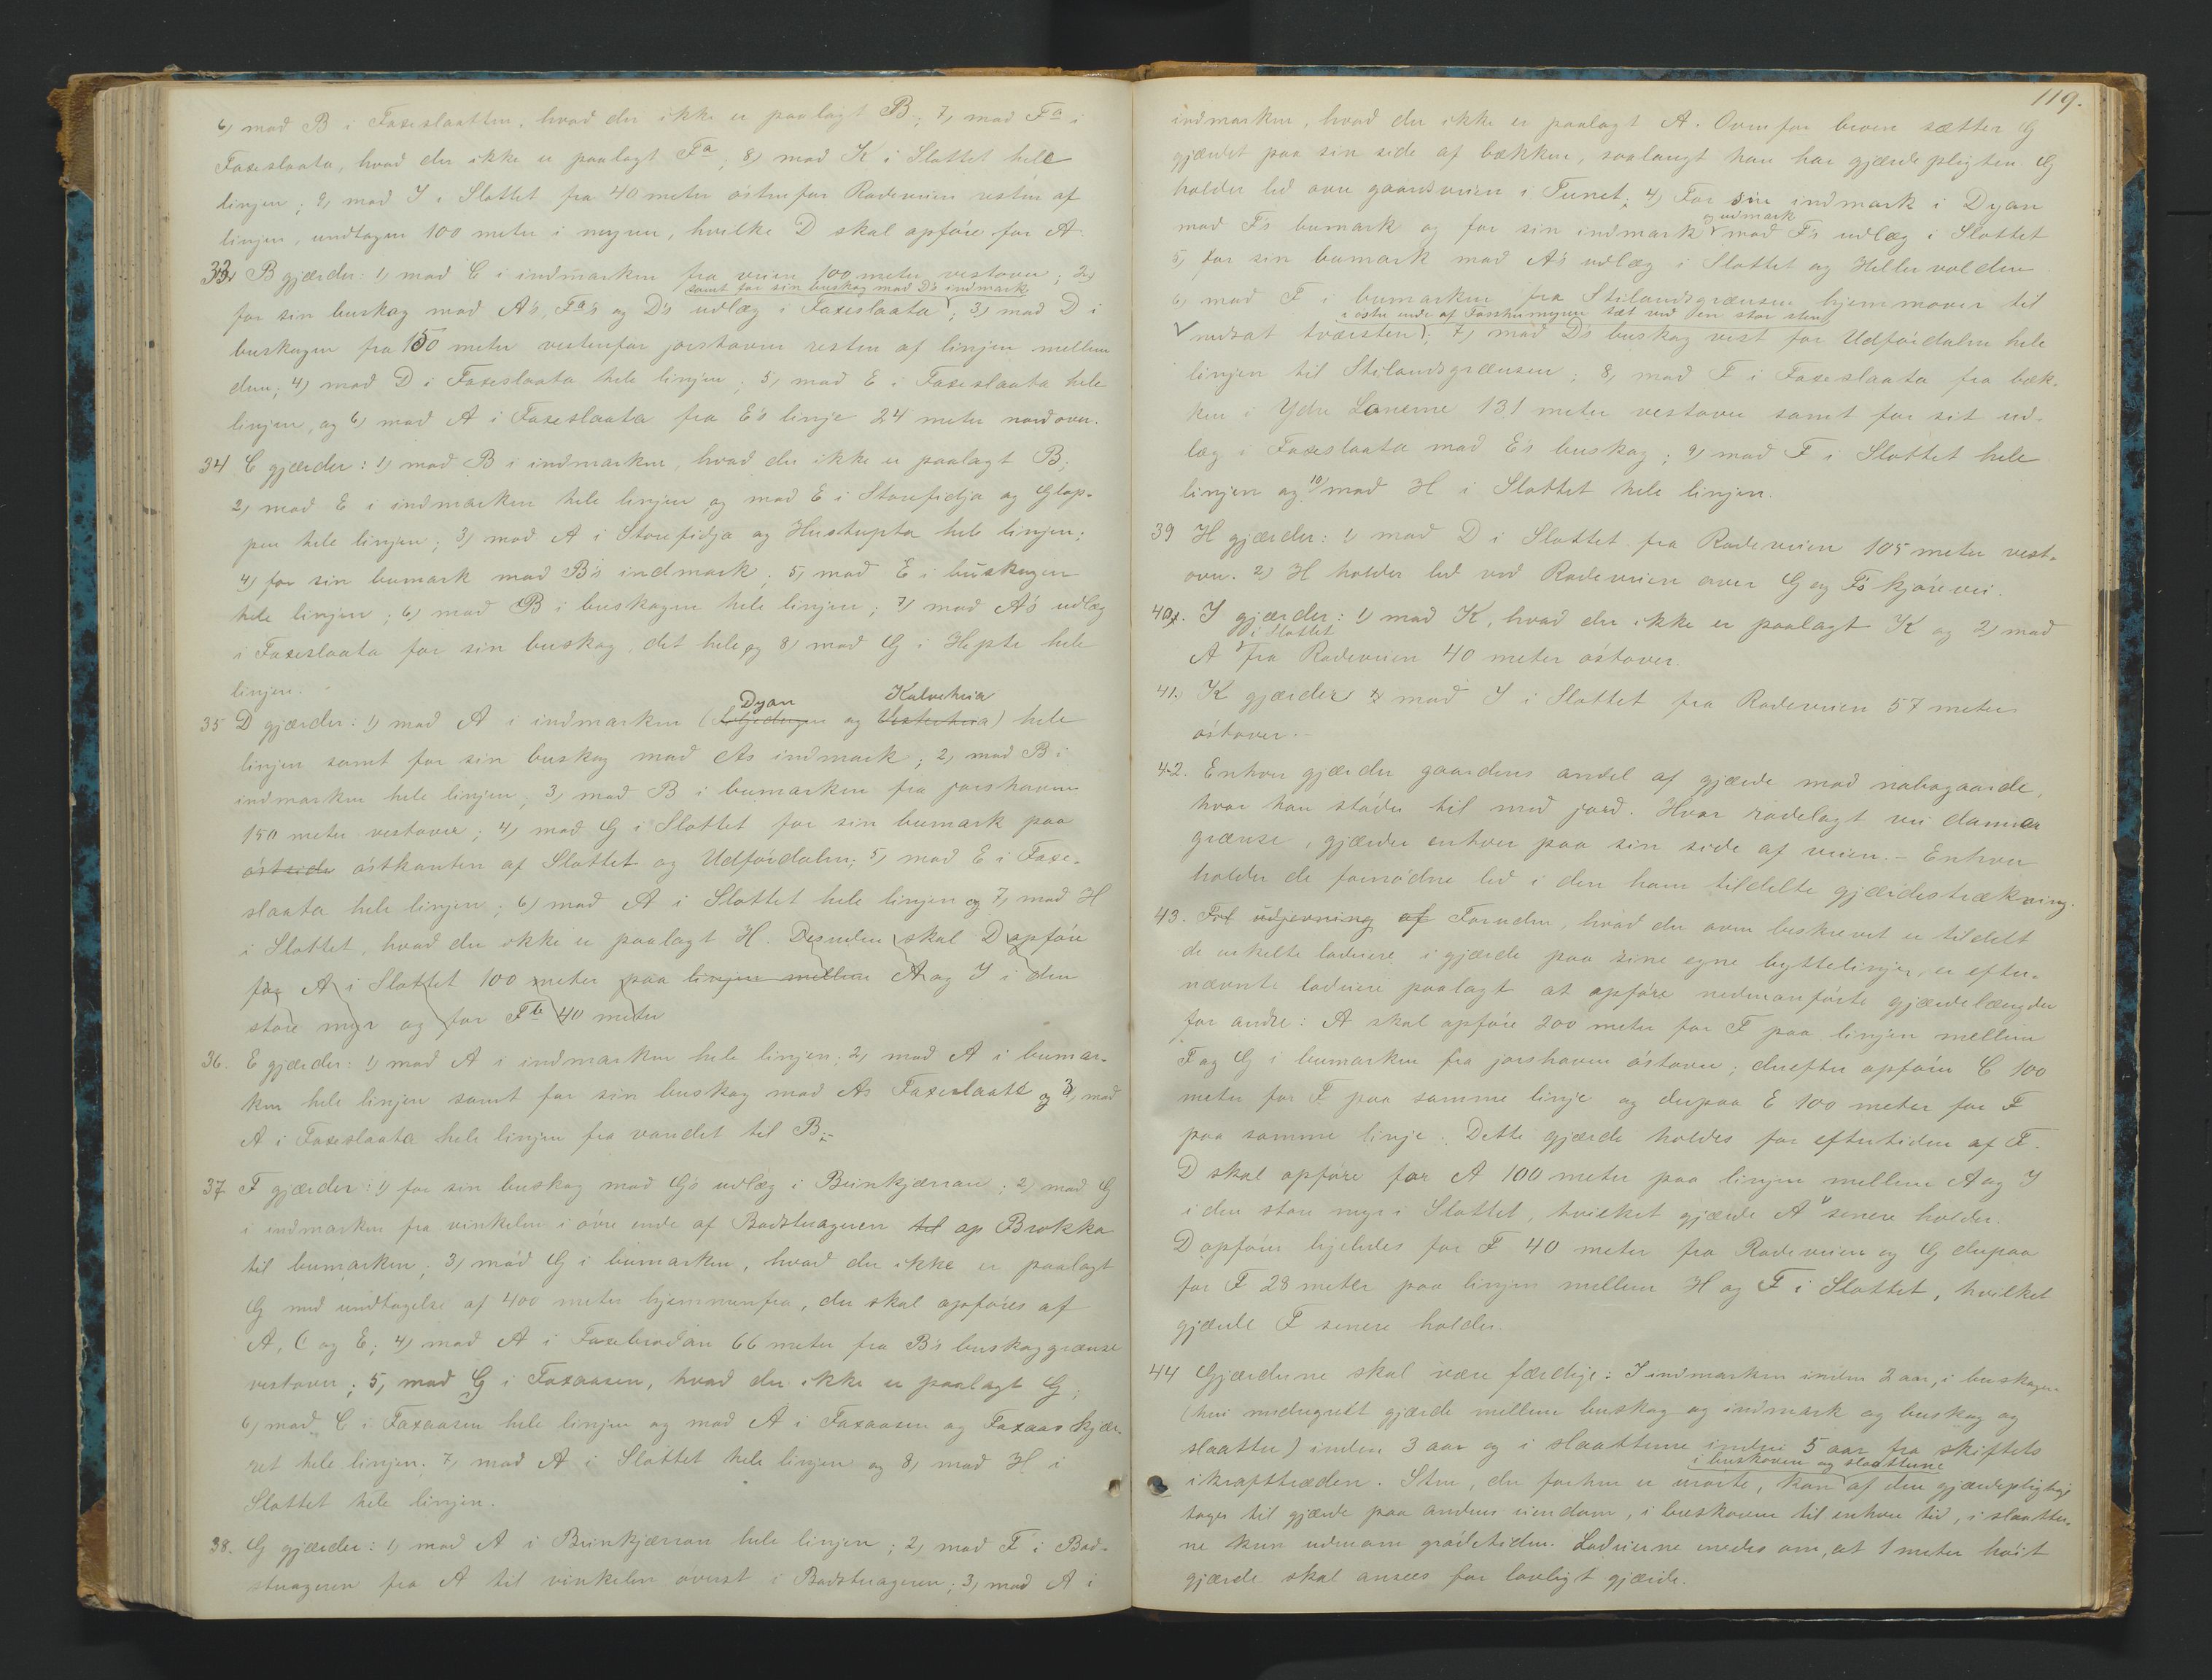 6) mod B i Faxeslaatten, hvad der ikke er paalagt B; 7, mod Fa i
Faxeslaata, hvad der ikke er paalagt Fa; 8) mod K i Slottet hele
linjen; 9, mod I i Slottet fra 40 meter östenfor Rodeveien resten af
linjen, undtagen 100 meter i myren, hvilke D skal opföre for A.
33. B gjærder: 1) mod C i indmarken fra veien 100 meter vestover; 2)
samt for sin buskog mod D's indmark
for sin buskog mod A's, Fa's og D's udlæg i Faxeslaata; 3) mod D i
buskogen fra 150 meter vestenfor jorstaven resten af linjen mellem
dem; 4) mod D i Faxeslaata hele linjen; 5, mod E i Faxeslaata hele
linjen, og 6) mod A i Faxeslaata fra E's linje 24 meter nordover.
34 C gjærder: 1) mod B i indmarken, hvad der ikke er paalagt B;
2, mod E i indmarken hele linjen og mod E i Storefidja og Glop-
pen hele linjen; 3) mod A i Storefidja og Hustupta hele linjen;
4) for sin bumark mod B's indmark; 5, mod E i buskogen
hele linjen; 6) mod B i buskogen hele linjen; 7) mod A's udlæg
i Faxeslaata for sin buskog, det hele og 8) mod G i Hepte hele
linjen.
Dyan Kalveheia
35 D gjærder: 1) mod A i indmarken ( og Vesterheia) hele
linjen samt for sin buskog mod As indmark; 2, mod B i
indmarken hele linjen; 3, mod B i bumarken fra jorshaven
150 meter vestover; 4, mod G i Slottet for sin bumark paa
östside östkanten af Slottet og Udfördalen; 5) mod E i Faxe-
slaata hele linjen; 6) mod A i Slottet hele linjen og 7, mod H
i Slottet, hvad der ikke er paalagt H. Desuden skal D opföre
for A i Slottet 100 meter paa linjen mellem A og I i den
store myr og for Fb 40 meter
36. E gjærder: 1) mod A i indmarken hele linjen; 2, mod A i bumar-
ken hele linjen samt for sin buskog mod As Faxeslaatt og 3, mod
A i Faxeslaata hele linjen fra vandet til B.-
37 F gjærder: 1) for sin buskog mod G's udlæg i Brinkjærran; 2, mod G
i indmarken fra vinkelen i övre ende af Badstuageren til op Brokka
til bumarken; 3, mod G i bumarken, hvad der ikke er paalagt
G med undtagelse af 400 meter hjemmenfra, der skal opföres af
A, C og E; 4) mod A i Faxebrodan 66 meter fra B's buskoggrænse
vestover; 5, mod G i Faxaasen, hvad der ikke er paalagt G;
6) mod C i Faxaasen hele linjen og mod A i Faxaasen og Faxaaskjær-
ret hele linjen; 7, mod A i Slottet hele linjen og 8, mod H i
Slottet hele linjen.
38. G gjærder: 1) mod A i Brinkjærran hele linjen; 2, mod F i Bad-
stuageren fra A til vinkelen överst i Badstuageren; 3, mod A i
119.
indmarken, hvad der ikke er paalagt A. Ovenfor broen sætter G
gjærdet paa sin side af bækken, saalangt han har gjærdepligten. G
holder led over gaardsveien i Tunet; 4) For sin indmark i Dyan
og udmark
mod F's bumark og for sin indmark mod F's udlæg i Slottet
5, for sin bumark mod A's udlæg i Slottet og Hellervolden
6, mod F i bumarken fra Stilandsgrænsen hjemmover til
i östre ende af Fosshumyren tæt ved en stor sten
nedsat tværsten; 7) mod D's buskog vest for Udfördalen hele
linjen til Stilandsgrænsen; 8, mod F i Faxeslaata fra bæk-
ken i Ydre Lonerne 131 meter vestover samt for sit ud-
læg i Faxeslaata mod E's buskog; 9) mod F i Slottet hele
linjen og 10) mod H i Slottet hele linjen.
39 H gjærder: 1) mod D i Slottet fra Rodeveien 105 meter vest-
over. 2) H holder led ved Rodeveien over G og F's kjörevei.
40. I gjærder: 1) mod K, hvad der ikke er paalagt K og 2) mod
i Slottet
A fra Rodeveien 40 meter östover.
41. K gjærder mod I i Slottet fra Rodeveien 57 meter
östover.-
42. Enhver gjærder gaardens andel af gjærde mod nabogaarde,
hvor han stöder til med jord. Hvor rodelagt vei danner
grænse, gjærder enhver paa sin side af veien.- Enhver
holder de fornödne led i den ham tildelte gjærdestrækning.
43. For udjevning af Foruden, hvad der oven beskrevet er tildelt
de enkelte lodeiere i gjærde paa sine egne byttelinjer, er efter-
nævnte lodeiere paalagt at opföre nedenanförte gjærdelængder
for andre: A skal opföre 200 meter for F paa linjen mellem
F og G i bumarken fra jorshaven östover; derefter opförer C 100
meter for F paa samme linje og derpaa E 100 meter for F
paa samme linje. Dette gjærde holdes for eftertiden af F.
D skal opföre for A 100 meter paa linjen mellem A og I
i den store myr i Slottet, hvilket gjærde A senere holder.
D opförer ligeledes for F 40 meter fra Rodeveien og G derpaa
for F 28 meter paa linjen mellem H og F i Slottet, hvilket
gjærde F senere holder.
44 Gjærderne skal være færdige: I indmarken inden 2 aar, i buskogen
(heri medregnet gjærde mellem buskog og indmark og buskog og
slaatter) inden 3 aar og i slaatterne inden 5 aar fra skiftets
i buskoven og slaatterne
ikrafttræden. Sten, der forhen er urörte, kan af den gjærdepligtige
tages til gjærde paa andens eiendom, i buskoven til enhver tid, i slaatter-
ne kun udenom grödetiden. Lodeierne enedes om, at 1 meter höit
gjærde skal ansees for lovligt gjærde.